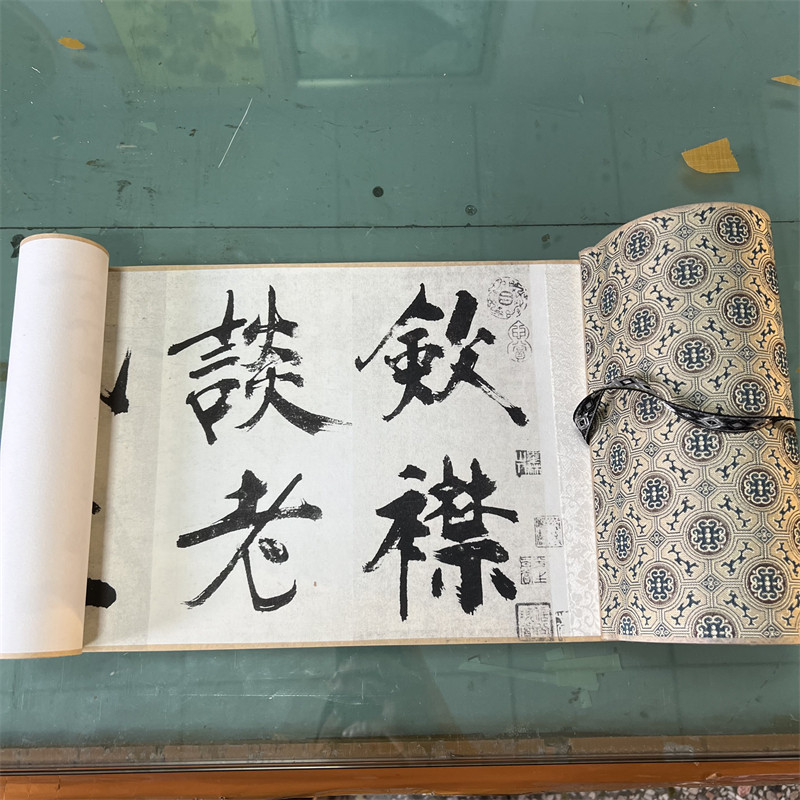 斂襟
談老